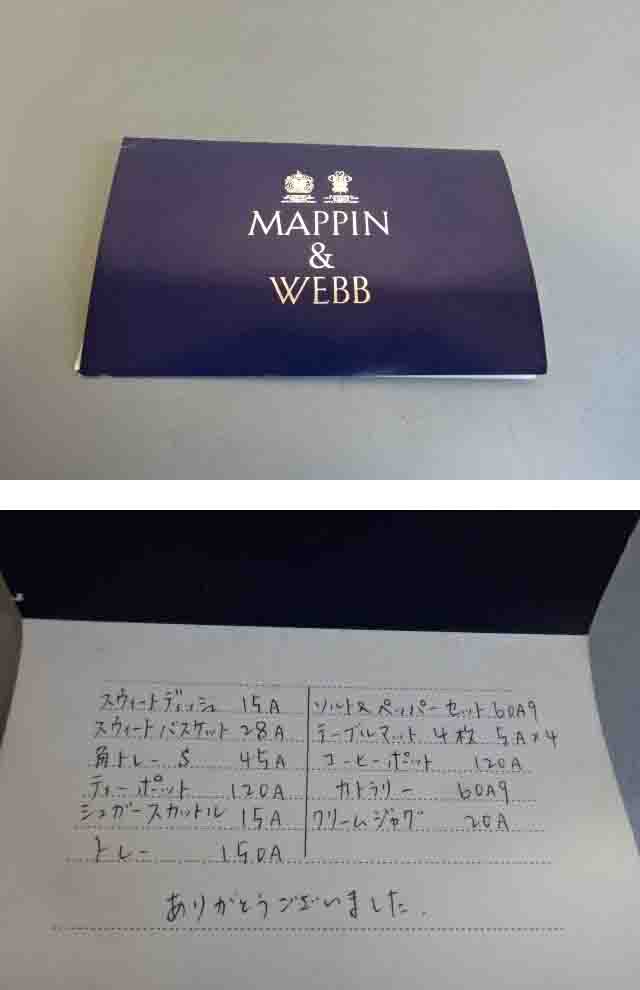 MAPPIN
&
WEBB
スウィートディッシュ 15A
スウィートバスケット 28A
角トレー S 45A
ティーポット 120A
シュガースカットル 15A
トレー 150A
ソルト&ペッパーセット 60A9
テーブルマット 4枚 5A×4
コーヒーポット 120A
カトラリー 60A9
クリームジャグ 20A
ありがとうございました.